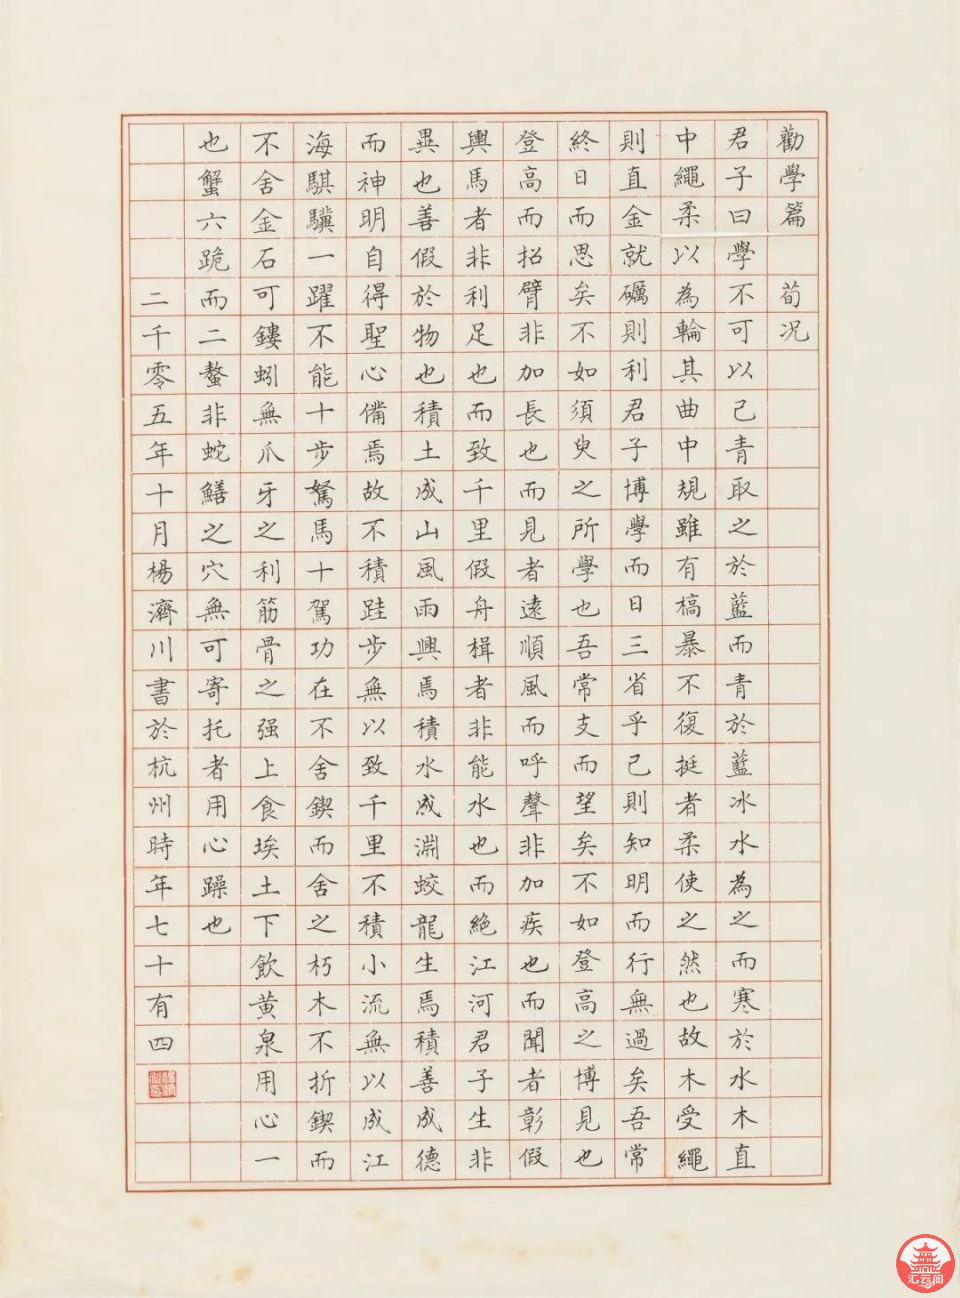 勸學篇 荀況
君子曰學不可以已青取之於藍而青於藍冰水為之而寒於水木直
中繩柔以為輪其曲中規雖有槁暴不復挺者柔使之然也故木受繩
則直金就礪則利君子博學而日三省乎己則知明而行無過矣吾常
終日而思矣不如須臾之所學也吾常支而望矣不如登高之博見也
登高而招臂非加長也而見者遠順風而呼聲非加疾也而聞者彰假
輿馬者非利足也而致千里假舟楫者非能水也而絕江河君子生非
異也善假於物也積土成山風雨興焉積水成淵蛟龍生焉積善成德
而神明自得聖心備焉故不積跬步無以致千里不積小流無以成江
海騏驥一躍不能十步駑馬十駕功在不舍鍥而舍之朽木不折鍥而
不舍金石可鏤蚓無爪牙之利筋骨之强上食埃土下飲黄泉用心一
也蟹六跪而二螯非蛇鱔之穴無可寄托者用心躁也
二千零五年十月楊濟川書於杭州時年七十有四
汇云阁